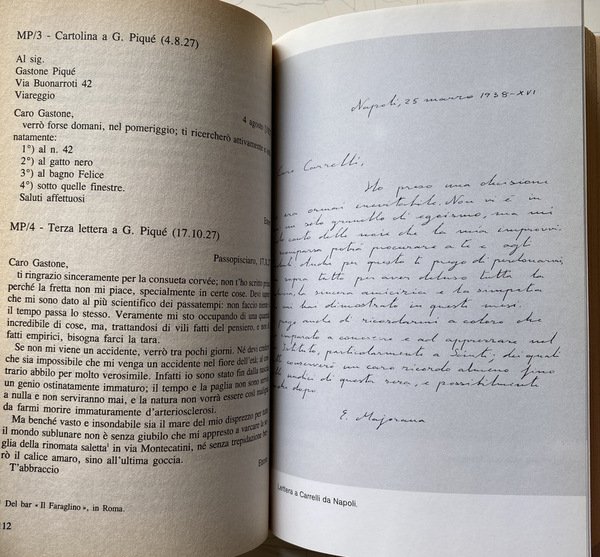 MP/3 - Cartolina a G. Piqué (4.8.27)
Al sig.
Gastone Piqué
Via Buonarroti 42
Viareggio
4 agosto
Caro Gastone,
verrò forse domani, nel pomeriggio; ti ricercherò attivamente e
natamente:
1°) al n. 42
2°) al gatto nero
3°) al bagno Felice
4°) sotto quelle finestre.
Saluti affettuosi
MP/4 - Terza lettera a G. Piqué (17.10.27)
Passopisciaro, 17.
Caro Gastone,
ti ringrazio sinceramente per la consueta corvée; non t'ho scritto
perché la fretta non mi piace, specialmente in certe cose. Devi
che mi sono dato al più scientifico dei passatempi: non faccio
il tempo passa lo stesso. Veramente mi sto occupando di una
incredibile di cose, ma, trattandosi di vili fatti del pensiero, e non
fatti empirici, bisogna farci la tara.
Se non mi viene un accidente, verrò tra pochi giorni. Né devi
che sia impossibile che mi venga un accidente nel fiore dell'età; al
trario abbilo per molto verosimile. Infatti io sono stato fin dalla
un genio ostinatamente immaturo; il tempo e la paglia non sono
a nulla e non serviranno mai, e la natura non vorrà essere così
da farmi morire immaturamente d'arteriosclerosi.
Ma benché vasto e insondabile sia il mare del mio disprezzo per
il mondo sublunare non è senza giubilo che mi appresto a varcare la
glia della rinomata saletta¹ in via Montecatini, né senza trepidazione
rò il calice amaro, sino all'ultima goccia.
T'abbraccio
Del bar « Il Faraglino », in Roma.
12
Napoli, 25 marzo 1938-XVI
Carrelli,
Ho preso una decisione
era ormai inevitabile. Non vi è in
un solo granello di egoismo, ma mi
conto delle noie che la mia improvvi
scomparsa potrà procurare a te e agli
studenti. Anche per questo ti prego di perdonarmi,
sopra tutto per aver deluso tutta la
la sincera amicizia e la simpatia
mi hai dimostrato in questi mesi.
prego anche di ricordarmi a coloro che
imparato a conoscere e ad apprezzare nel
Istituto, particolarmente a Sciuti; dei quali
conserverò un caro ricordo almeno fino
undici di questa sera, e possibilmente
anche dopo.
E. Majorana
Lettera a Carrelli da Napoli.